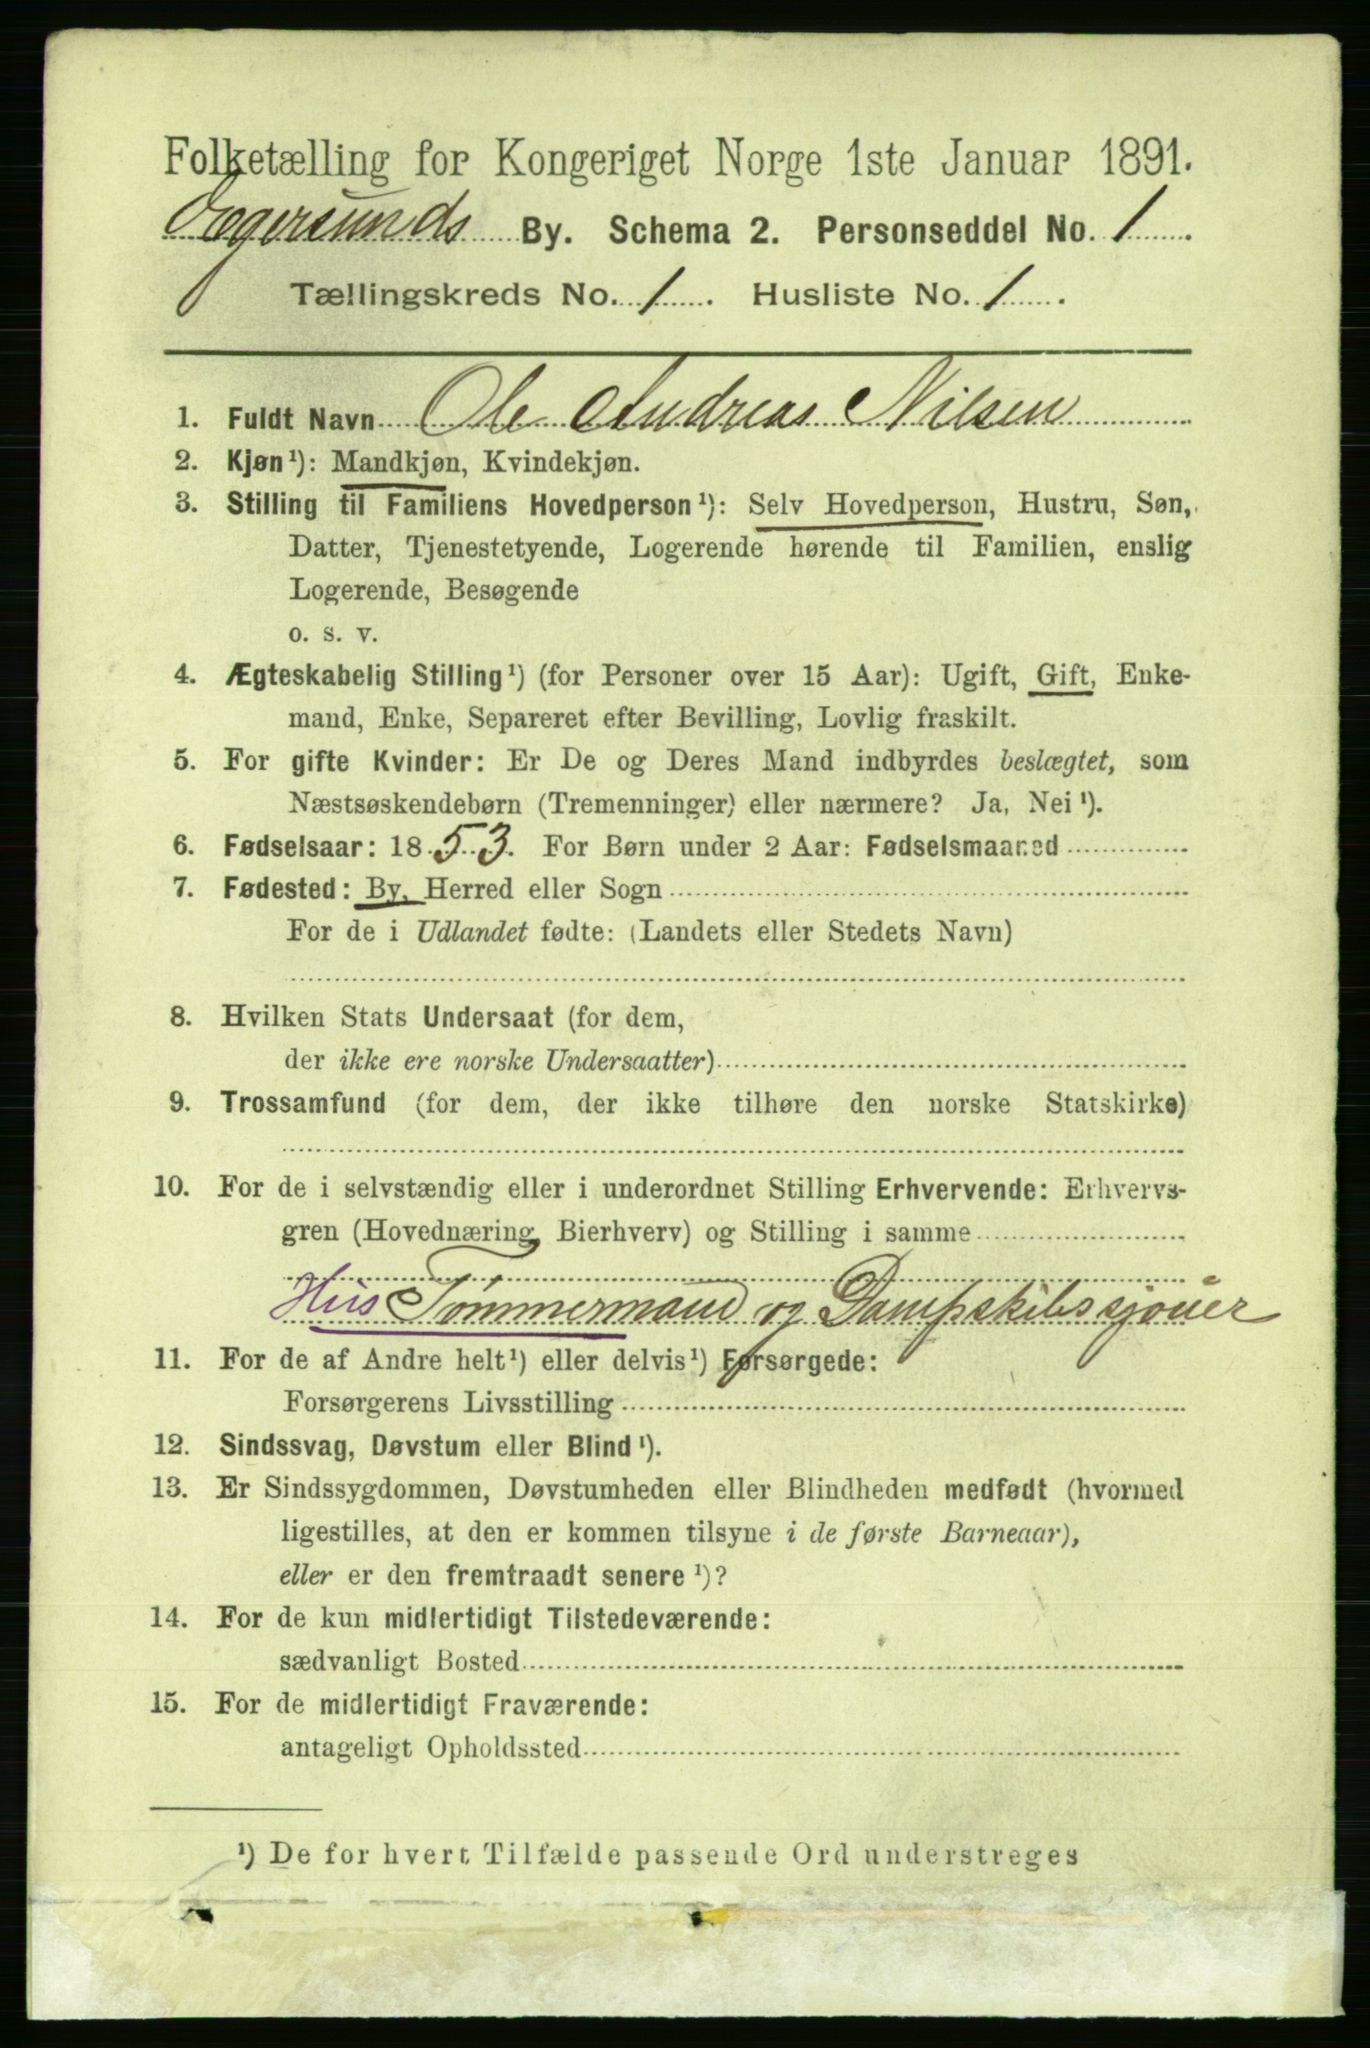 Folketælling for Kongeriget Norge 1ste Januar 1891.
Egersunds By. Schema 2. Personseddel No. 1.
Tællingskreds No. 1. Husliste No. 1.
1. Fuldt Navn Ole Andreas Nilsen
2. Kjøn¹): Mandkjøn, Kvindekjøn.
3. Stilling til Familiens Hovedperson¹): Selv Hovedperson, Hustru, Søn,
Datter, Tjenestetyende, Logerende hørende til Familien, enslig
Logerende, Besøgende
o. s. v.
4. Ægteskabelig Stilling¹) (for Personer over 15 Aar): Ugift, Gift, Enke-
mand, Enke, Separeret efter Bevilling, Lovlig fraskilt.
5. For gifte Kvinder: Er De og Deres Mand indbyrdes beslægtet, som
Næstsøskendebørn (Tremenninger) eller nærmere? Ja, Nei¹).
6. Fødselsaar: 1853. For Børn under 2 Aar: Fødselsmaaned
7. Fødested: By, Herred eller Sogn
For de i Udlandet fødte: (Landets eller Stedets Navn)
8. Hvilken Stats Undersaat (for dem,
der ikke ere norske Undersaatter)
9. Trossamfund (for dem, der ikke tilhøre den norske Statskirke)
10. For de i selvstændig eller i underordnet Stilling Erhvervende: Erhvervs-
gren (Hovednæring, Bierhverv) og Stilling i samme
Hus Tømmermand og Dampskibssjouer
11. For de af Andre helt¹) eller delvis¹) Forsørgede:
Forsørgerens Livsstilling
12. Sindssvag, Døvstum eller Blind¹).
13. Er Sindssygdommen, Døvstumheden eller Blindheden medfødt (hvormed
ligestilles, at den er kommen tilsyne i de første Barneaar),
eller er den fremtraadt senere¹)?
14. For de kun midlertidigt Tilstedeværende:
sædvanligt Bosted
15. For de midlertidigt Fraværende:
antageligt Opholdssted
¹) De for hvert Tilfælde passende Ord understreges